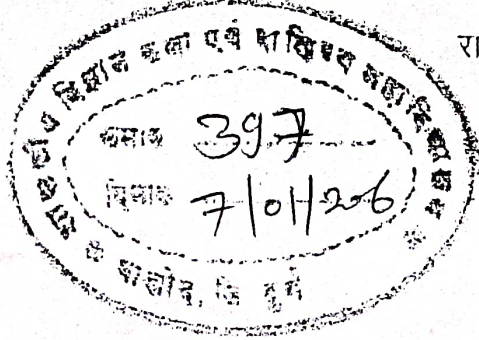 शासकीय विज्ञान कला एवं वाणिज्य महाविद्यालय
रा
क्रमांक 397
दिनांक 7/01/206
बालोद, जि दुर्ग